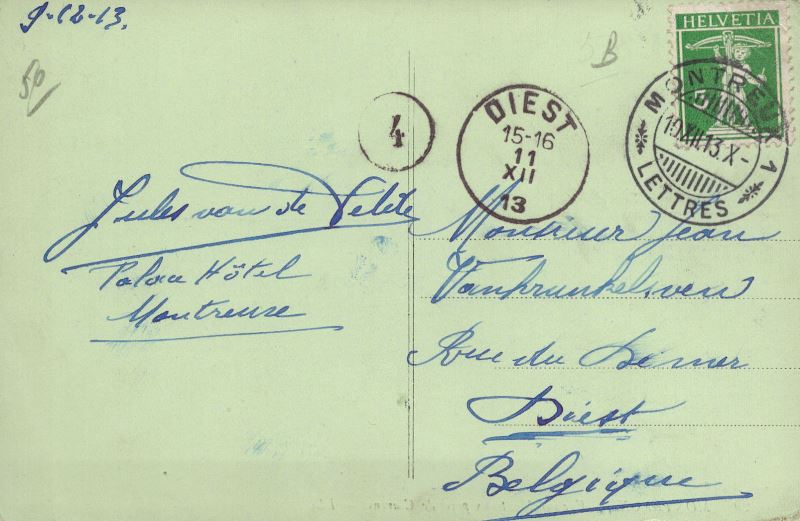 9-12-13.
50
B
HELVETIA
MONTREUX 1
10.XII.13.X-
LETTRES
4
DIEST
15-16
11
XII
13
Jules van de
Palace Hôtel
Montreuse
Monsieur Jean
Vanbrunkelsven
Rue du Demer
Diest
Belgique